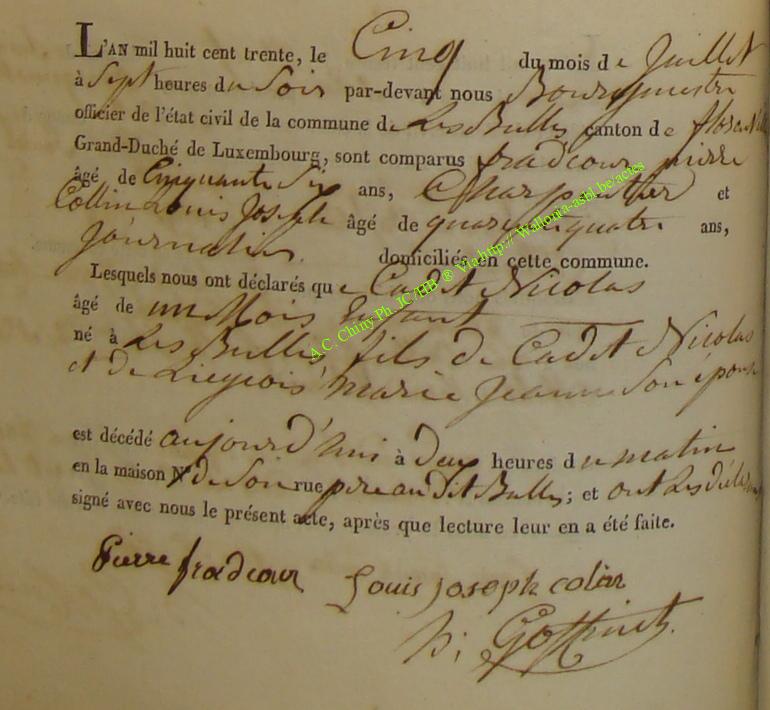 L'AN mil huit cent trente, le Cinq du mois de Juillet
à Sept heures du Soir par-devant nous Bourgmestre
officier de l'état civil de la commune de Les Bulles canton de florenville
Grand-Duché de Luxembourg, sont comparus fradcour pierre
âgé de Cinquante Six ans, Charpentier et
Collin Louis Joseph âgé de quarante quatre ans,
Journalier. domiciliés en cette commune.
Lesquels nous ont déclarés que Cadet Nicolas
âgé de un Mois Enfant
né à Les Bulles fils de Cadet Nicolas
et de Liegeois marie Jeanne Son épouse
est décédé aujourd'hui à deux heures du matin
en la maison N° de Son rue pere au dit Bulles; et ont Les déclarans
signé avec nous le présent acte, après que lecture leur en a été faite.
Pierre fradcour Louis joseph colin
Goffinet.
A.C. Chiny Ph. JC/HB ® Via http:// Wallonia-asbl.be/actes